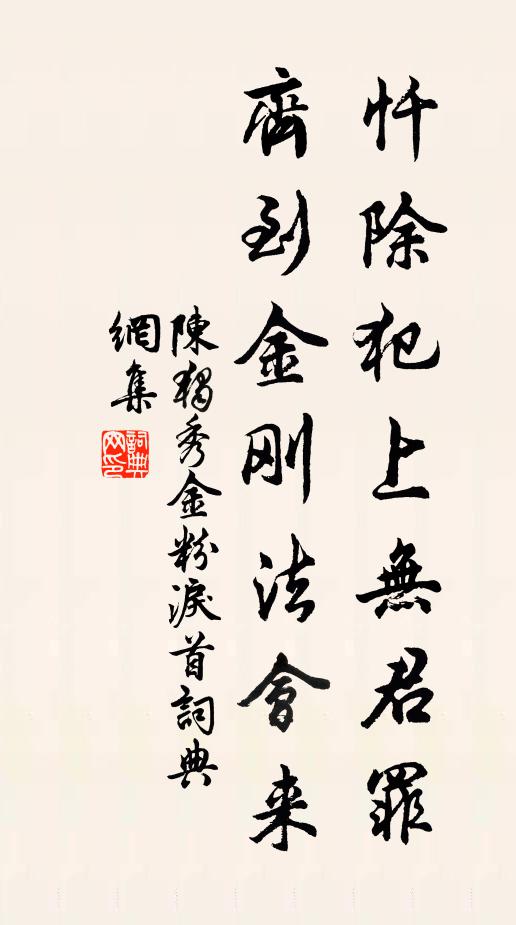 忏除犯上無君罪
齊到金刚法會来
陳獨秀金粉淚首詞典
網集
詞典
网印